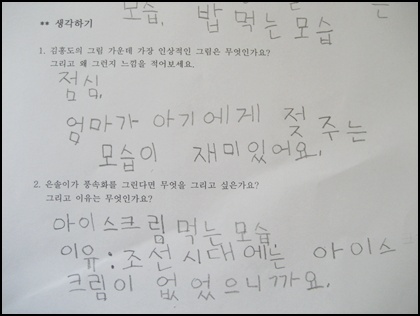 모습. 밥 먹는 모습
** 생각하기
1. 김홍도의 그림 가운데 가장 인상적인 그림은 무엇인가요?
그리고 왜 그런지 느낌을 적어보세요.
점심.
엄마가 아기에게 젖 주는
모습이 재미있어요.
2. 은솔이가 풍속화를 그린다면 무엇을 그리고 싶은가요?
그리고 이유는 무엇인가요?
아이스크림 먹는 모습.
이유: 조선 시대에는 아이스
크림이 없었으니까요.